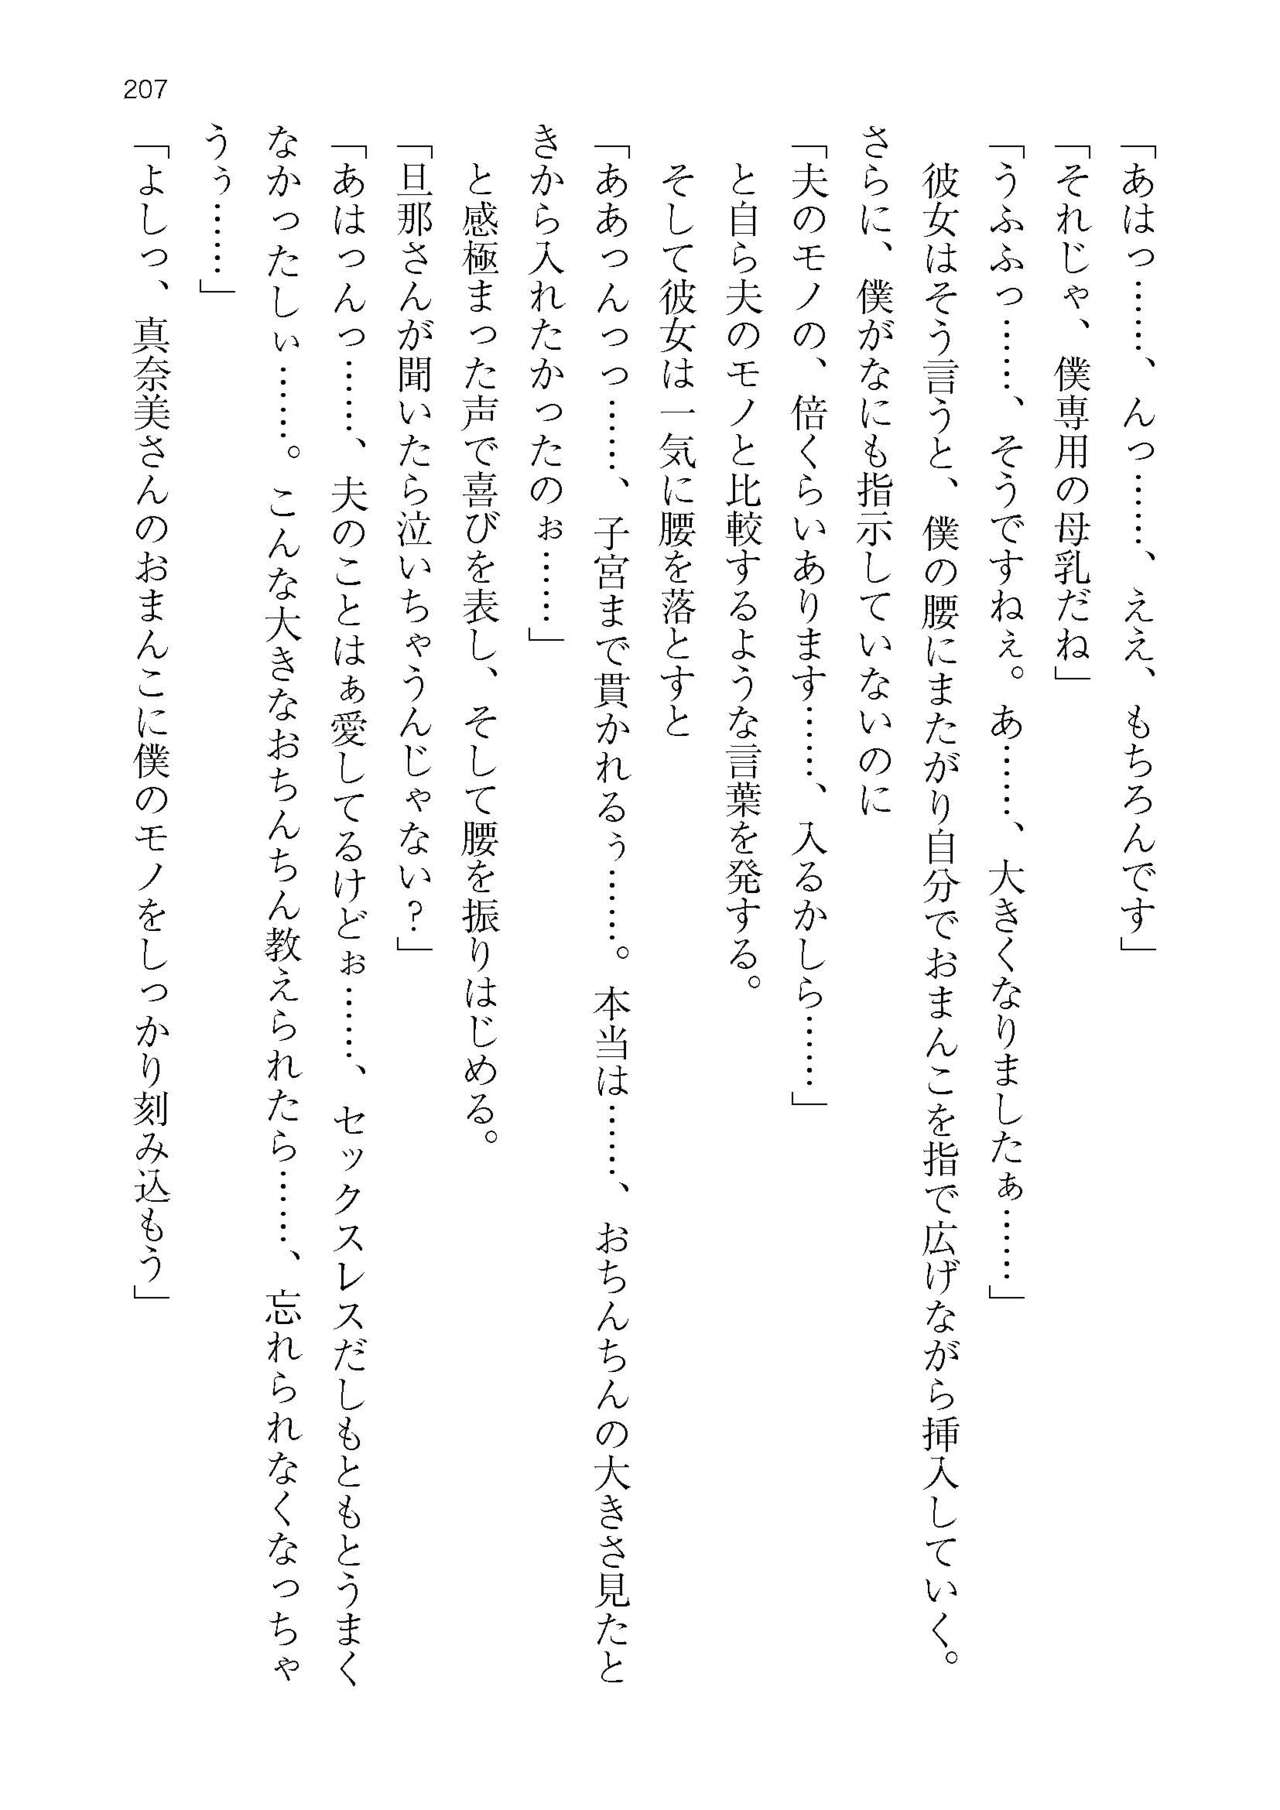 207
「あはっ……、んっ……、ええ、もちろんです」
「それじゃ、僕専用の母乳だね」
「うふふっ……、そうですねぇ。あ……、大きくなりましたぁ……」
彼女はそう言うと、僕の腰にまたがり自分でおまんこを指で広げながら挿入していく。
さらに、僕がなにも指示していないのに
「夫のモノの、倍くらいあります……、入るかしら……」
と自ら夫のモノと比較するような言葉を発する。
そして彼女は一気に腰を落とすと
「ああっんっっ……、子宮まで貫かれるぅ……。本当は……、おちんちんの大きさ見たと
きから入れたかったのぉ……」
と感極まった声で喜びを表し、そして腰を振りはじめる。
「旦那さんが聞いたら泣いちゃうんじゃない？」
「あはっんっ……、夫のことはぁ愛してるけどぉ……、セックスレスだしもともとうまく
なかったしぃ……。こんな大きなおちんちん教えられたら……、忘れられなくなっちゃ
うぅ……」
「よしっ、真奈美さんのおまんこに僕のモノをしっかり刻み込もう」